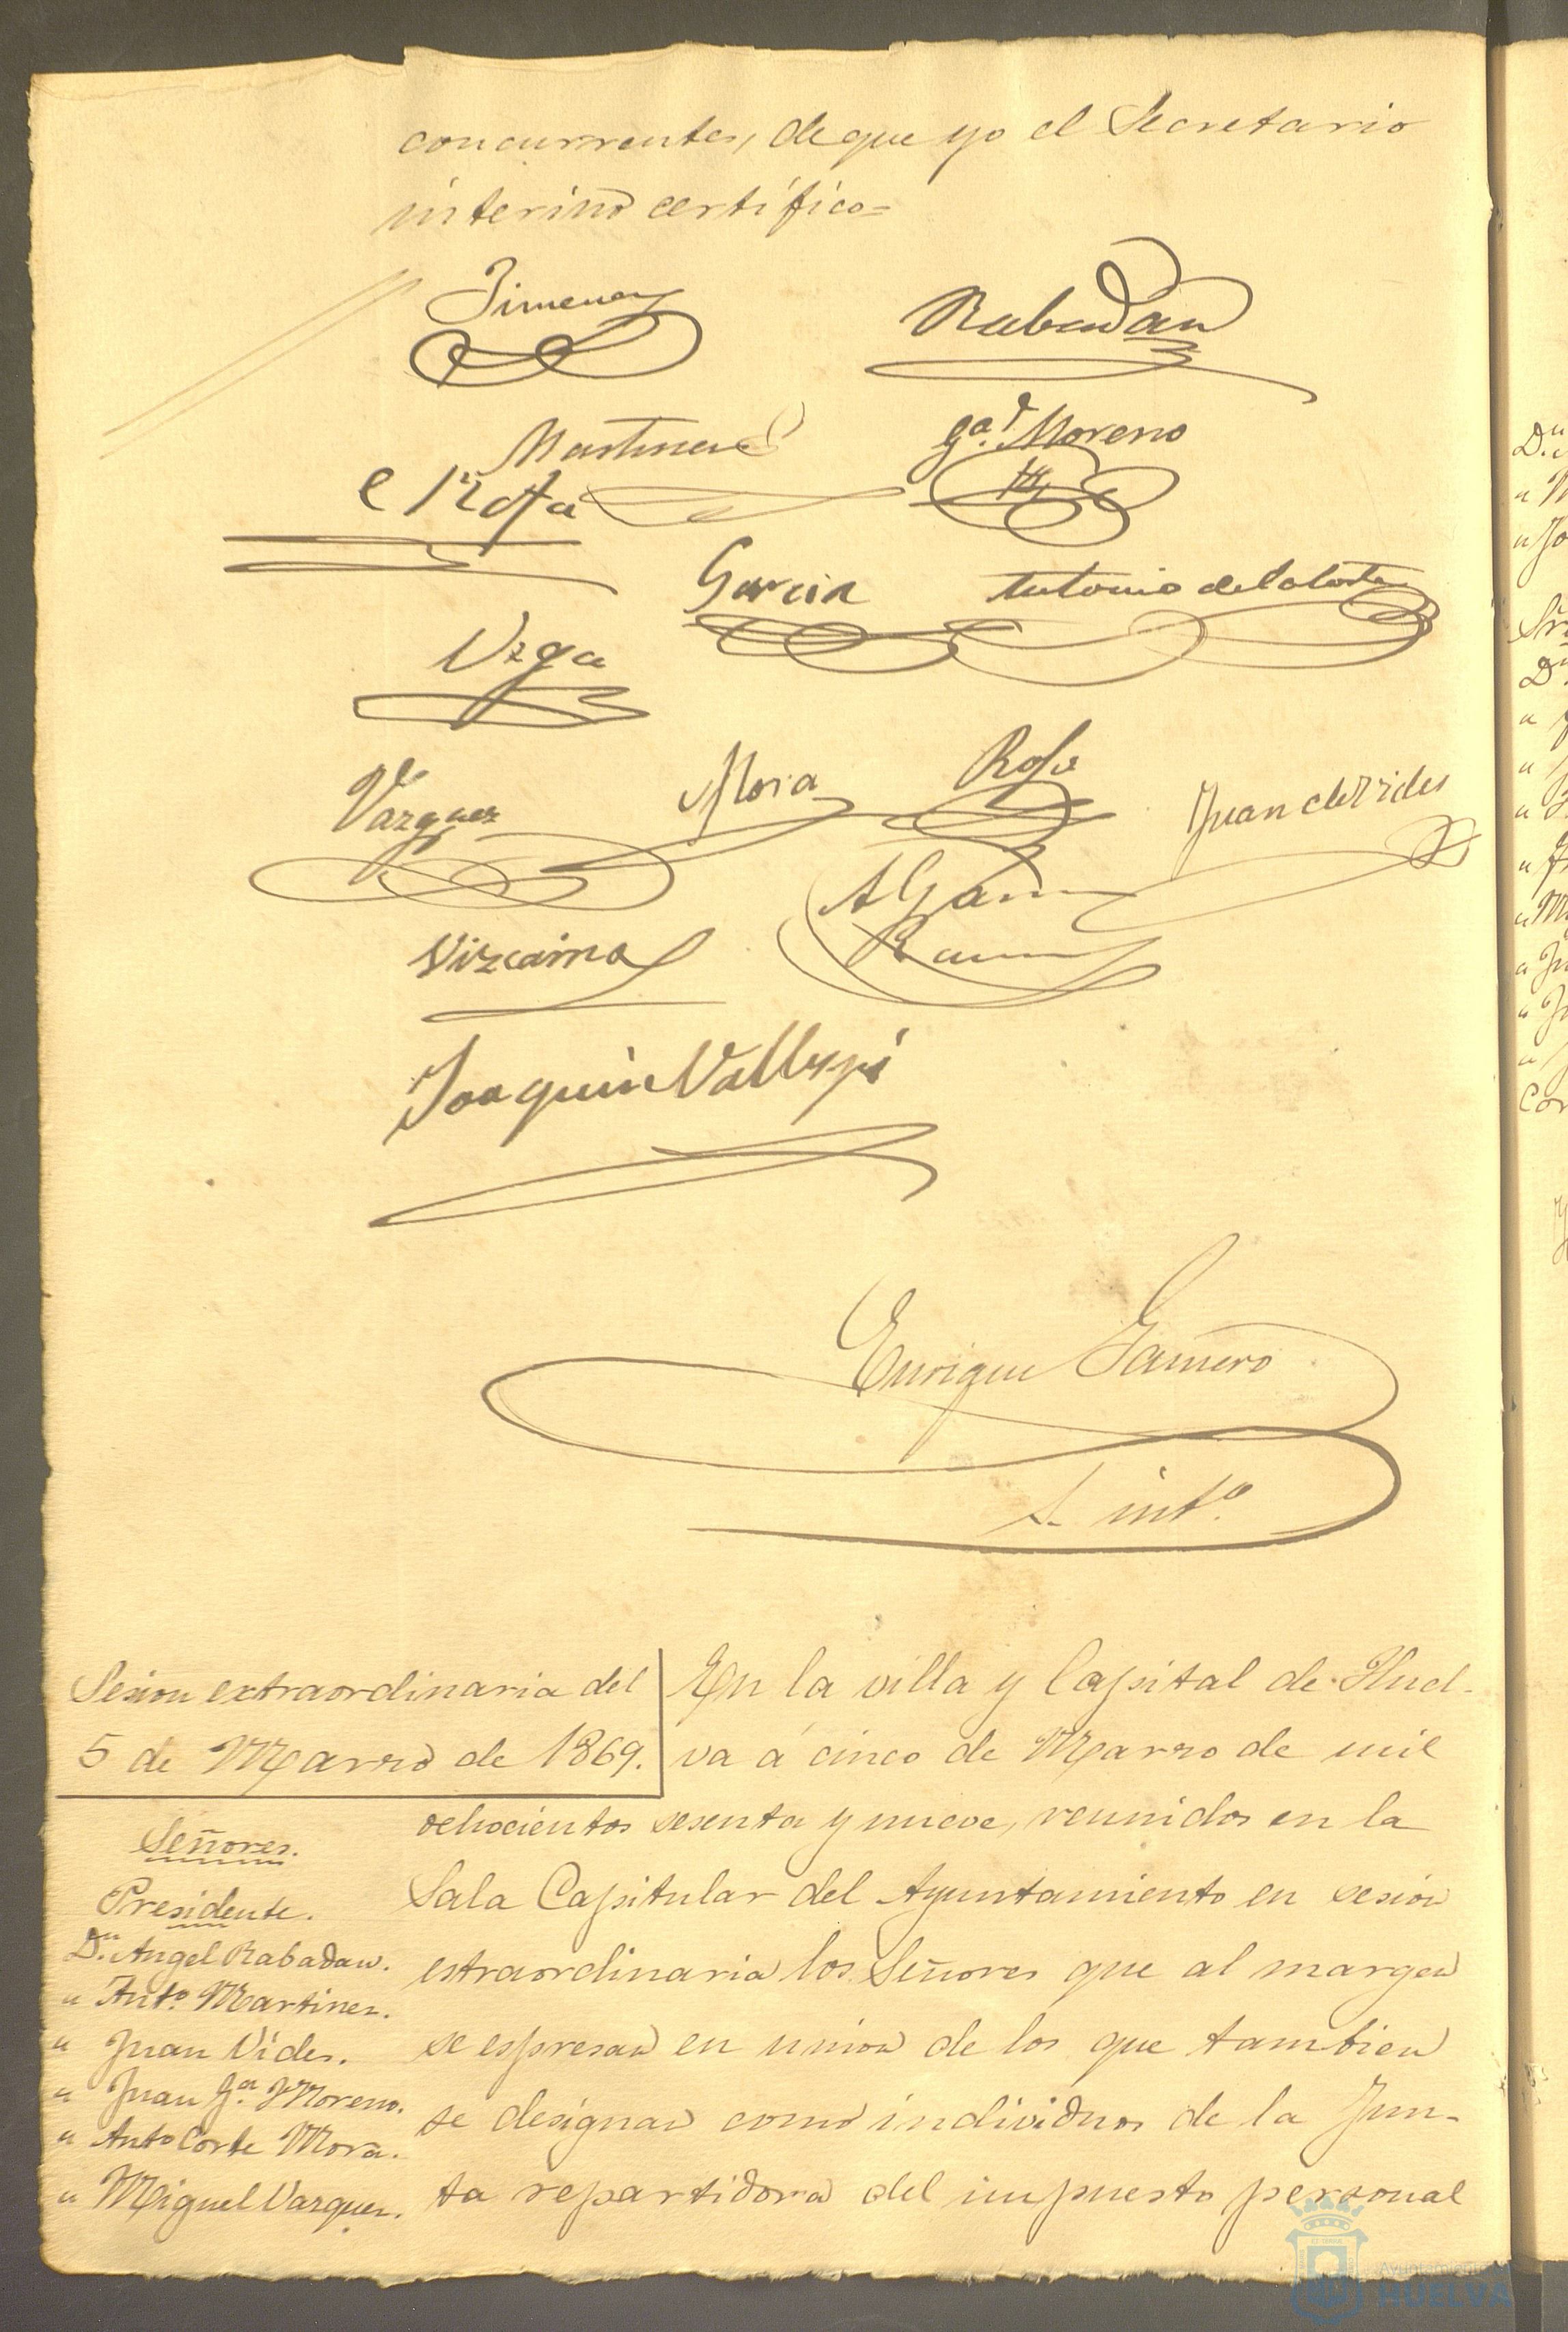 concurrentes, de que yo el Secretario
interino certifico=
Jimenez
Rabadan
Martinez
Ga. Moreno
Garcia
Antonio de la Corte
Vega
Vazquez
Mora
Rofa
Juan de Vides
Vizcaino
Joaquin Vallespi
Enrique Gamero
S. into.
Sesion extraordinaria del
5 de Marzo de 1869.
Señores.
Presidente.
Dn. Angel Rabadan.
" Anto. Martinez.
" Juan Vides.
" Juan Ga. Moreno.
" Anto Corte Mora.
" Miguel Vazquez.
En la villa y Capital de Huel-
va á cinco de Marzo de mil
ochocientos sesenta y nueve, reunidos en la
Sala Capitular del Ayuntamiento en sesion
estraordinaria los Señores que al margen
se espresan en union de los que tambien
se designan como individuos de la Jun-
ta repartidora del impuesto personal
Ayuntamiento
HUELVA